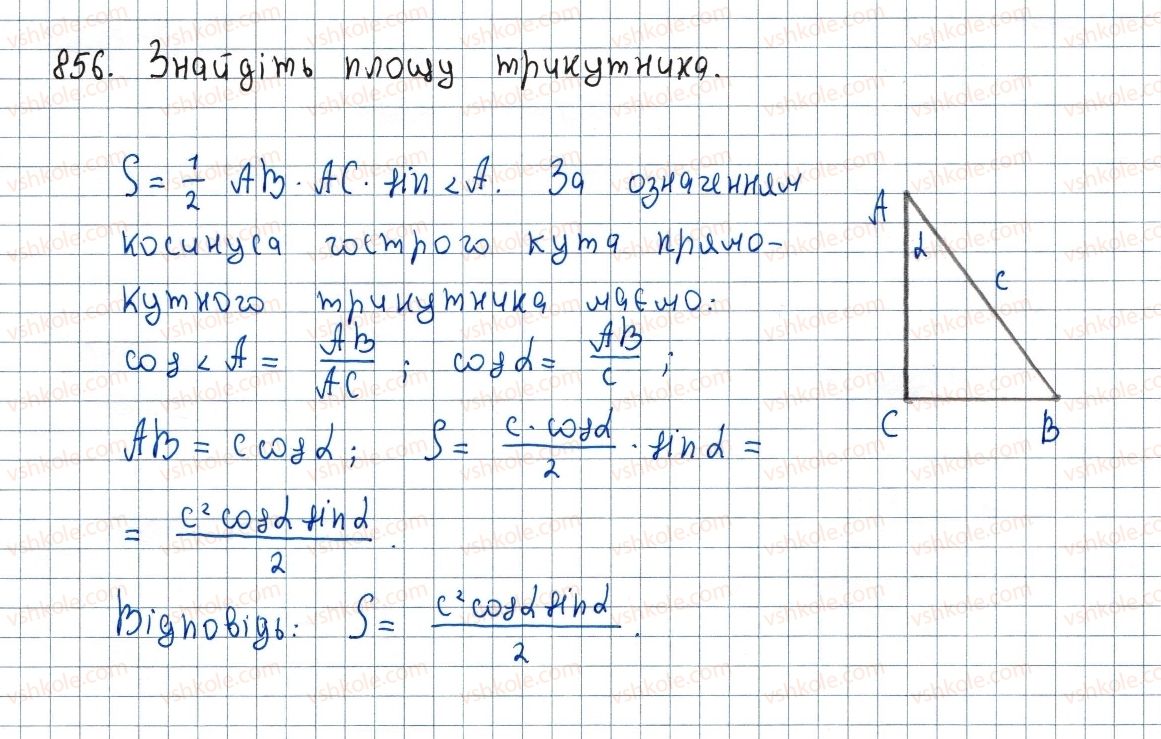 856. Знайдіть площу трикутника.
S = 1/2 AB · AC · sin < A. За означенням
косинуса гострого кута прямо-
кутного трикутника маємо:
cos < A = AB/AC ; cos α = AB/c ;
AB = c cos α ; S = c · cos α/2 · sin α =
= c² cos α sin α/2 .
Відповідь: S = c² cos α sin α/2 .
A
α
c
C
B
vshkole.com